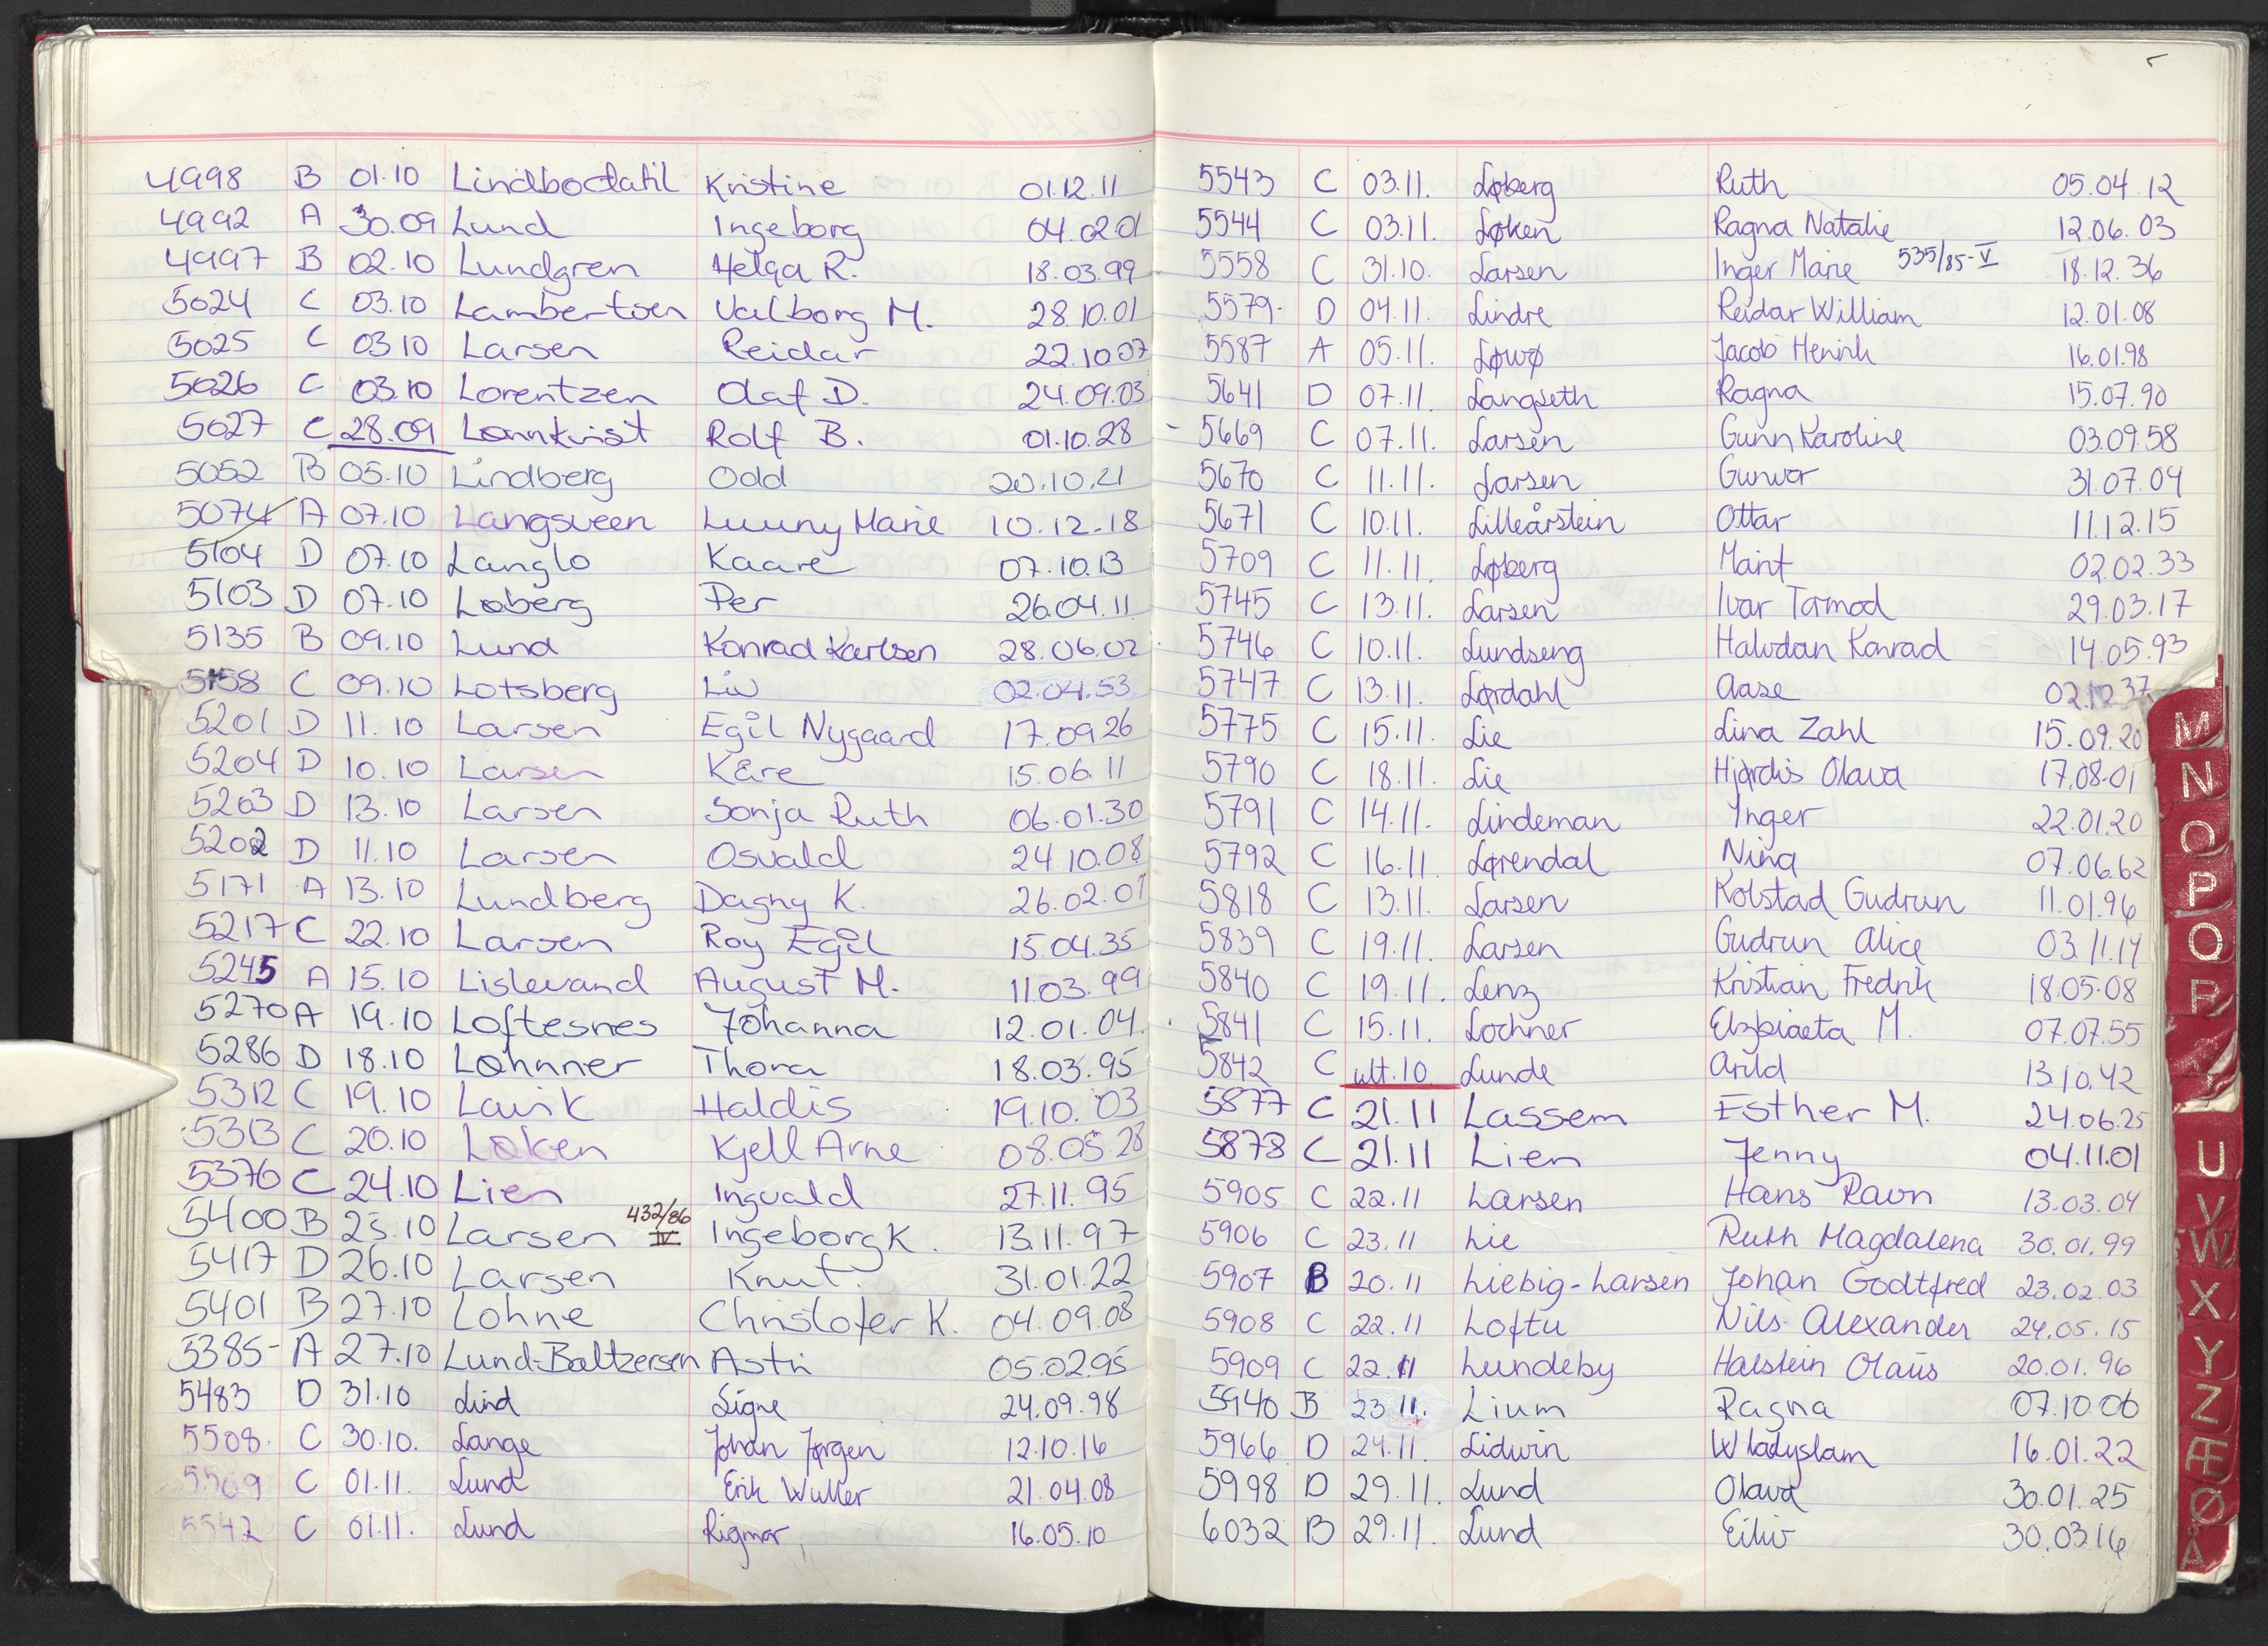 4998 B 01.10 Lindbodahl Kristine 01.12.11
4992 A 30.09 Lund Ingeborg 04.02.01
4997 B 02.10 Lundgren Helga R. 18.03.99
5024 C 03.10 Lambertsen Valborg M. 28.10.01
5025 C 03.10 Larsen Reidar 22.10.07
5026 C 03.10 Lorentzen Olaf D. 24.09.03
5027 C 28.09 Lønnkvist Rolf B. 01.10.28
5052 B 05.10 Lindberg Odd 20.10.21
5074 A 07.10 Langsveen Marie 10.12-18
5104 D 07.10 Langlo Kaare 07.10.13
5103 D 07.10 Løberg Per 26.04.11
5135 B 09.10 Lund Konrad Karlsen 28.06.02
5158 C 09.10 Lotsberg Liv 02.04.53
5201 D 11.10 Larsen Egil Nygaard 17.09.26
5204 D 10.10 Larsen Kåre 15.06.11
5203 D 13.10 Larsen Sonja Ruth 06.01.30
5202 D 11.10 Larsen Osvald 24.10.08
5171 A 13.10 Lundberg Dagny K. 26.02.07
5217 C 22.10 Larsen Roy Egil 15.04.35
5245 A 15.10 Lislevand August M. 11.03.99
5270 A 19.10 Loftesnes Johanna 12.01.04.
5286 D 18.10 Løhnner Thora 18.03.95
5312 C 19.10 Lavik Haldis 19.10.03
5313 C 20.10 Løken Kjell Arne 08.05.28
5376 C 24.10 Lien Ingvald 27.11.95
5400 B 25.10 Larsen 432/86 IV Ingeborg K. 13.11.97
5417 D 26.10 Larsen Knut. 31.01.22
5401 B 27.10 Lohne Christofer K. 04.09.08
5385- A 27.10 Lund-Baltzersen Astri 05.02.95
5483 D 31.10 Lind Signe 24.09.98
5508. C 30.10. Lange Johan Jørgen 12.10.16
5509 C 01.11. Lund Erik Wuller 21.04.08
5542 C 01.11. Lund Rigmor 16.05.10
5543 C 03.11. Løberg Ruth 05.04.12
5544 C 03.11. Løken Ragna Natalie 12.06.03
5558 C 31.10. Larsen Inger Marie 535/85-V 18.12.36
5579. D 04.11. Lindre Reidar William 12.01.08
5587 A 05.11. Løwø Jacob Henrik 16.01.98
5641 D 07.11. Langseth Ragna 15.07.90
5669 C 07.11. Larsen Gunn Karoline 03.09.58
5670 C 11.11. Larsen Gunvor 31.07.04
5671 C 10.11. Lilleårstein Ottar 11.12.15
5709 C 11.11. Løberg Marit 02.02.33
5745 C 13.11. Larsen Ivar Tormod 29.03.17
5746 C 10.11. Lundseng Halvdan Konrad 14.05.93
5747 C 13.11. Lørdahl Aase 02.12.37
5775 C 15.11. Lie Lina Zahl 15.09.20
5790 C 18.11. Lie Hjørdis Olava 17.08.01
5791 C 14.11. Lindeman Inger 22.01.20
5792 C 16.11. Lørendal Nina 07.06.62
5818 C 13.11. Larsen Kolstad Gudrun 11.01.96
5839 C 19.11. Larsen Gudrun Alice 03.11.14
5840 C 19.11. Lenz Kristian Fredrik 18.05.08
5841 C 15.11. Lochner Elzbiaeta M. 07.07.55
5842 C ult.10 Lunde Arild 13.10.42
5877 C 21.11 Lassem Esther M. 24.06.25
5878 C 21.11 Lien Jenny 04.11.01
5905 C 22.11 Larsen Hans Ravn 13.03.04
5906 C 23.11 Lie Ruth Magdalena 30.01.99
5907 B 20.11 Liebig-Larsen Johan Godtfred 23.02.03
5908 C 22.11 Loftu Nils Alexander 24.05.15
5909 C 22.11 Lundeby Halstein Olaus 20.01.96
5940 B 23.11. Lium Ragna 07.10.06
5966 D 24.11. Lidwin Wladyslam 16.01.22
5998 D 29.11. Lund Olava 30.01.25
6032 B 29.11. Lund Eiliv 30.03.16
M
N
O
P
Q
R
U
V
W
X
Y
Z
Æ
Ø
Å